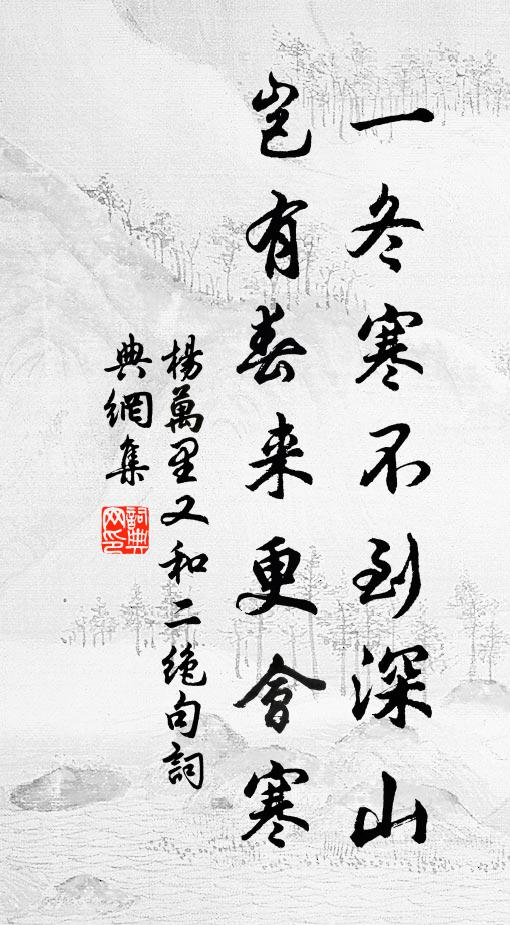 一冬寒不到深山
岂有春来更會寒
楊萬里又和二绝句詞
典網集
詞典网印